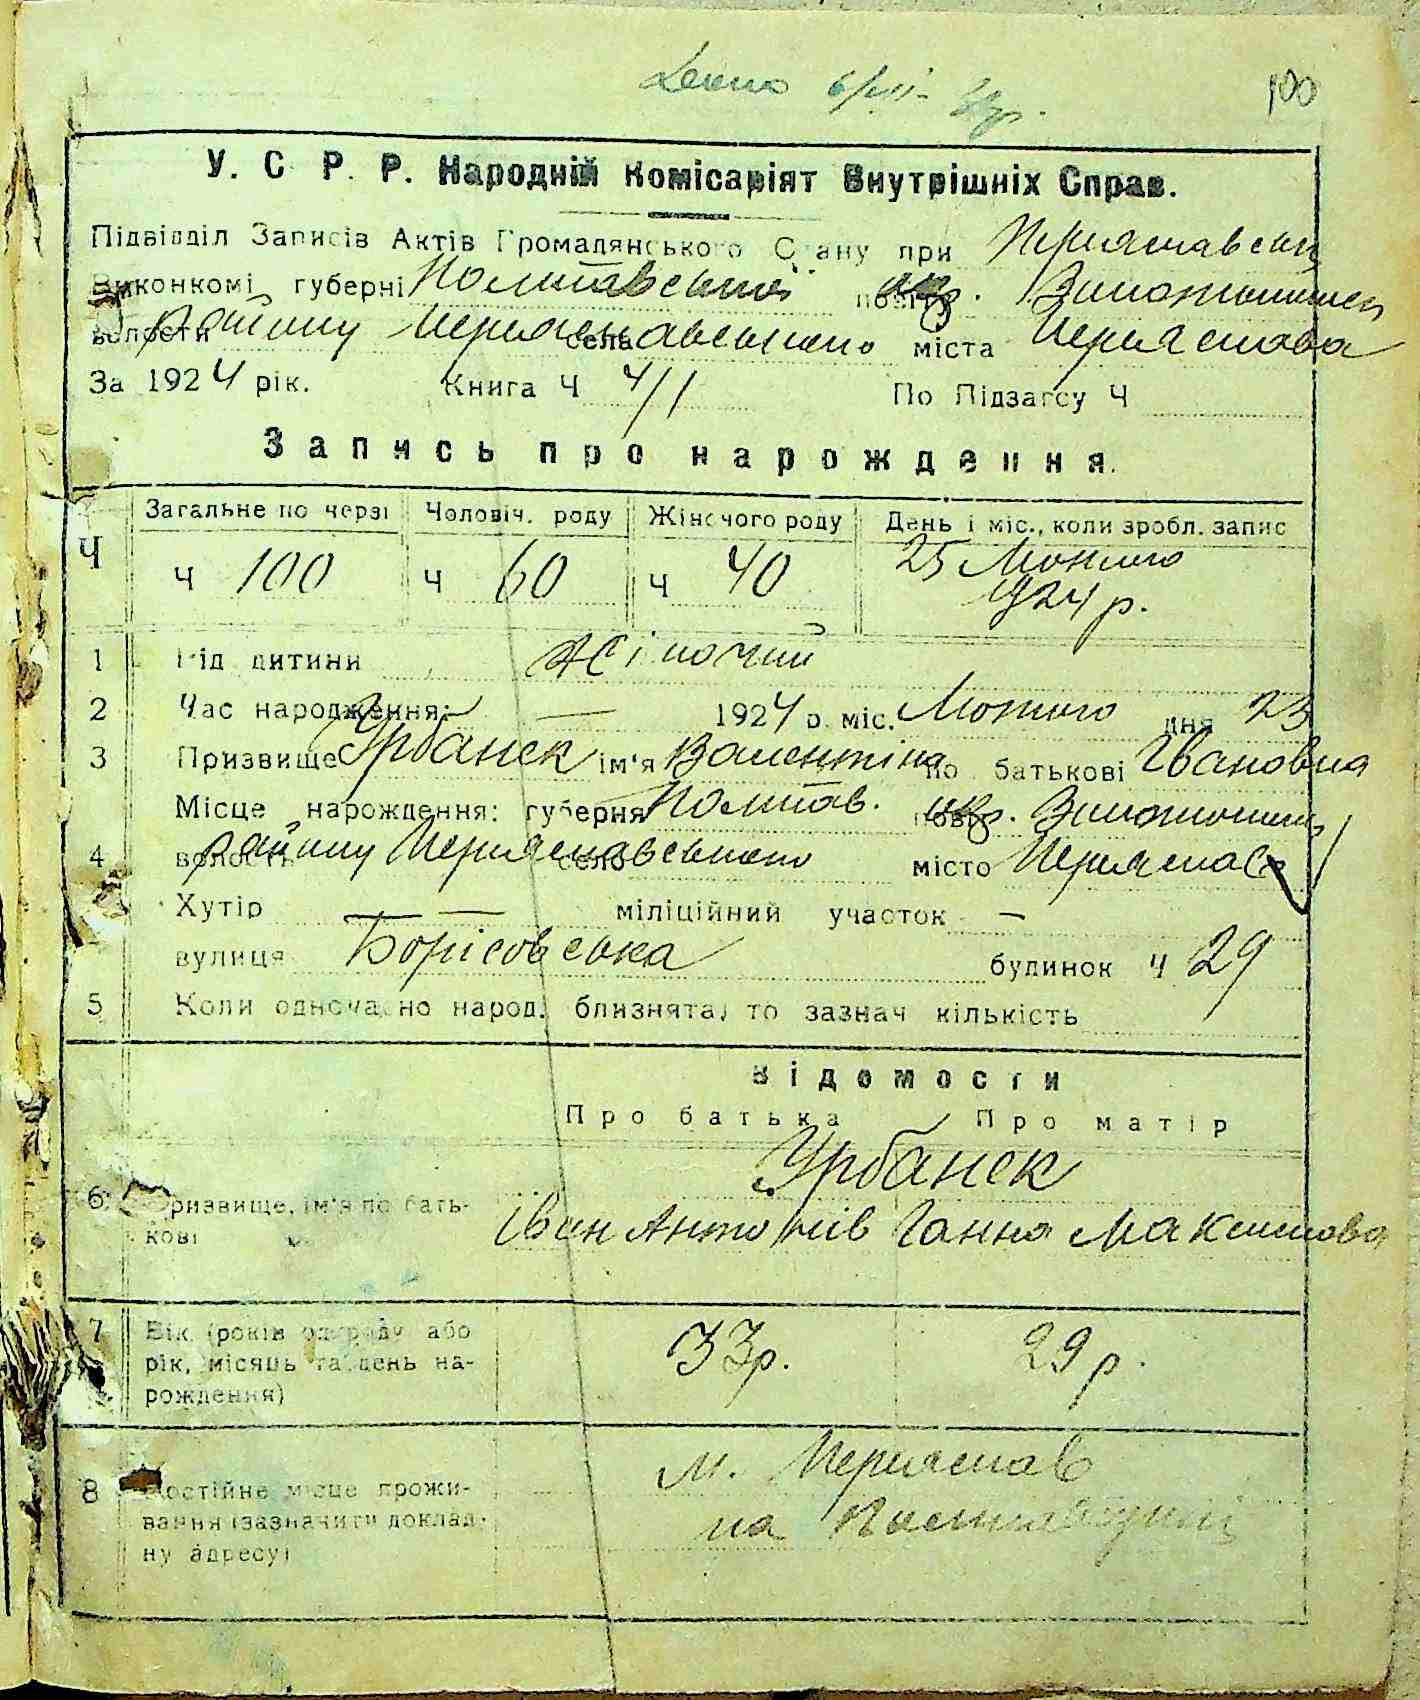 100
У. С. Р. Р. Народній Комісаріят Внутрішніх Справ.
Підвідділ Записів Актів Громадянського Стану при Переяславськ
Виконкомі губерні Полтавської повіту окр. Золотоношськ
волости району Переяславського села міста Переяслава
За 1924 рік. Книга Ч 4/1 По Підзагсу Ч
Запись про нарождення.
Ч
Загальне по черзі Чоловіч. роду Жіночого роду День і міс., коли зробл. запис
ч 100 ч 60 ч 40 25 Лютого
1924 р.
1 Рід дитини Жіночий
2 Час народження: — 1924 р. міс. Лютого дня 23
3 Призвище Урбанек ім'я Валентіна по батькові Івановна
Місце нарождення: губерня Полтав. повіт окр. Золотоношськ
4 волость району Переяславського село місто Переяслав
Хутір — міліційний участок —
вулиця Борісовська будинок ч 29
5 Коли одночасно народ. близнята, то зазнач кількість
Відомости
Про батька Про матір
Урбанек
6 Призвище, ім'я по бать-
кові
Іван Антонів Ганна Максимова
7 Вік (років од роду або
рік, місяць та день на-
рождення)
33 р. 29 р.
8 Постійне місце прожи-
вання (зазначити доклад-
ну адресу)
м. Переяслав
на Полтавщині